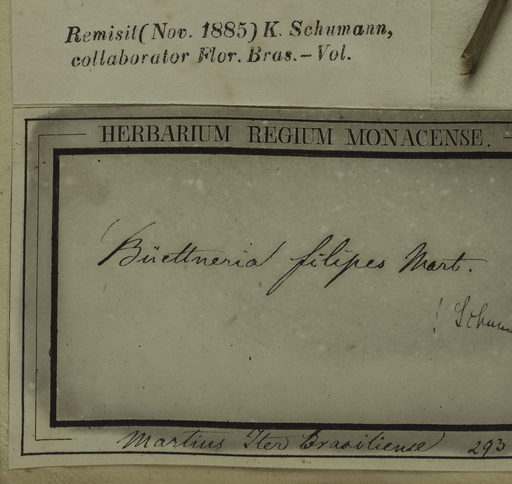 Remisit (Nov. 1885) K. Schumann,
collaborator Flor. Bras. – Vol.
HERBARIUM REGIUM MONACENSE.
Büettneria filipes Mart.
! Schum
Martius Iter Brasiliense 293